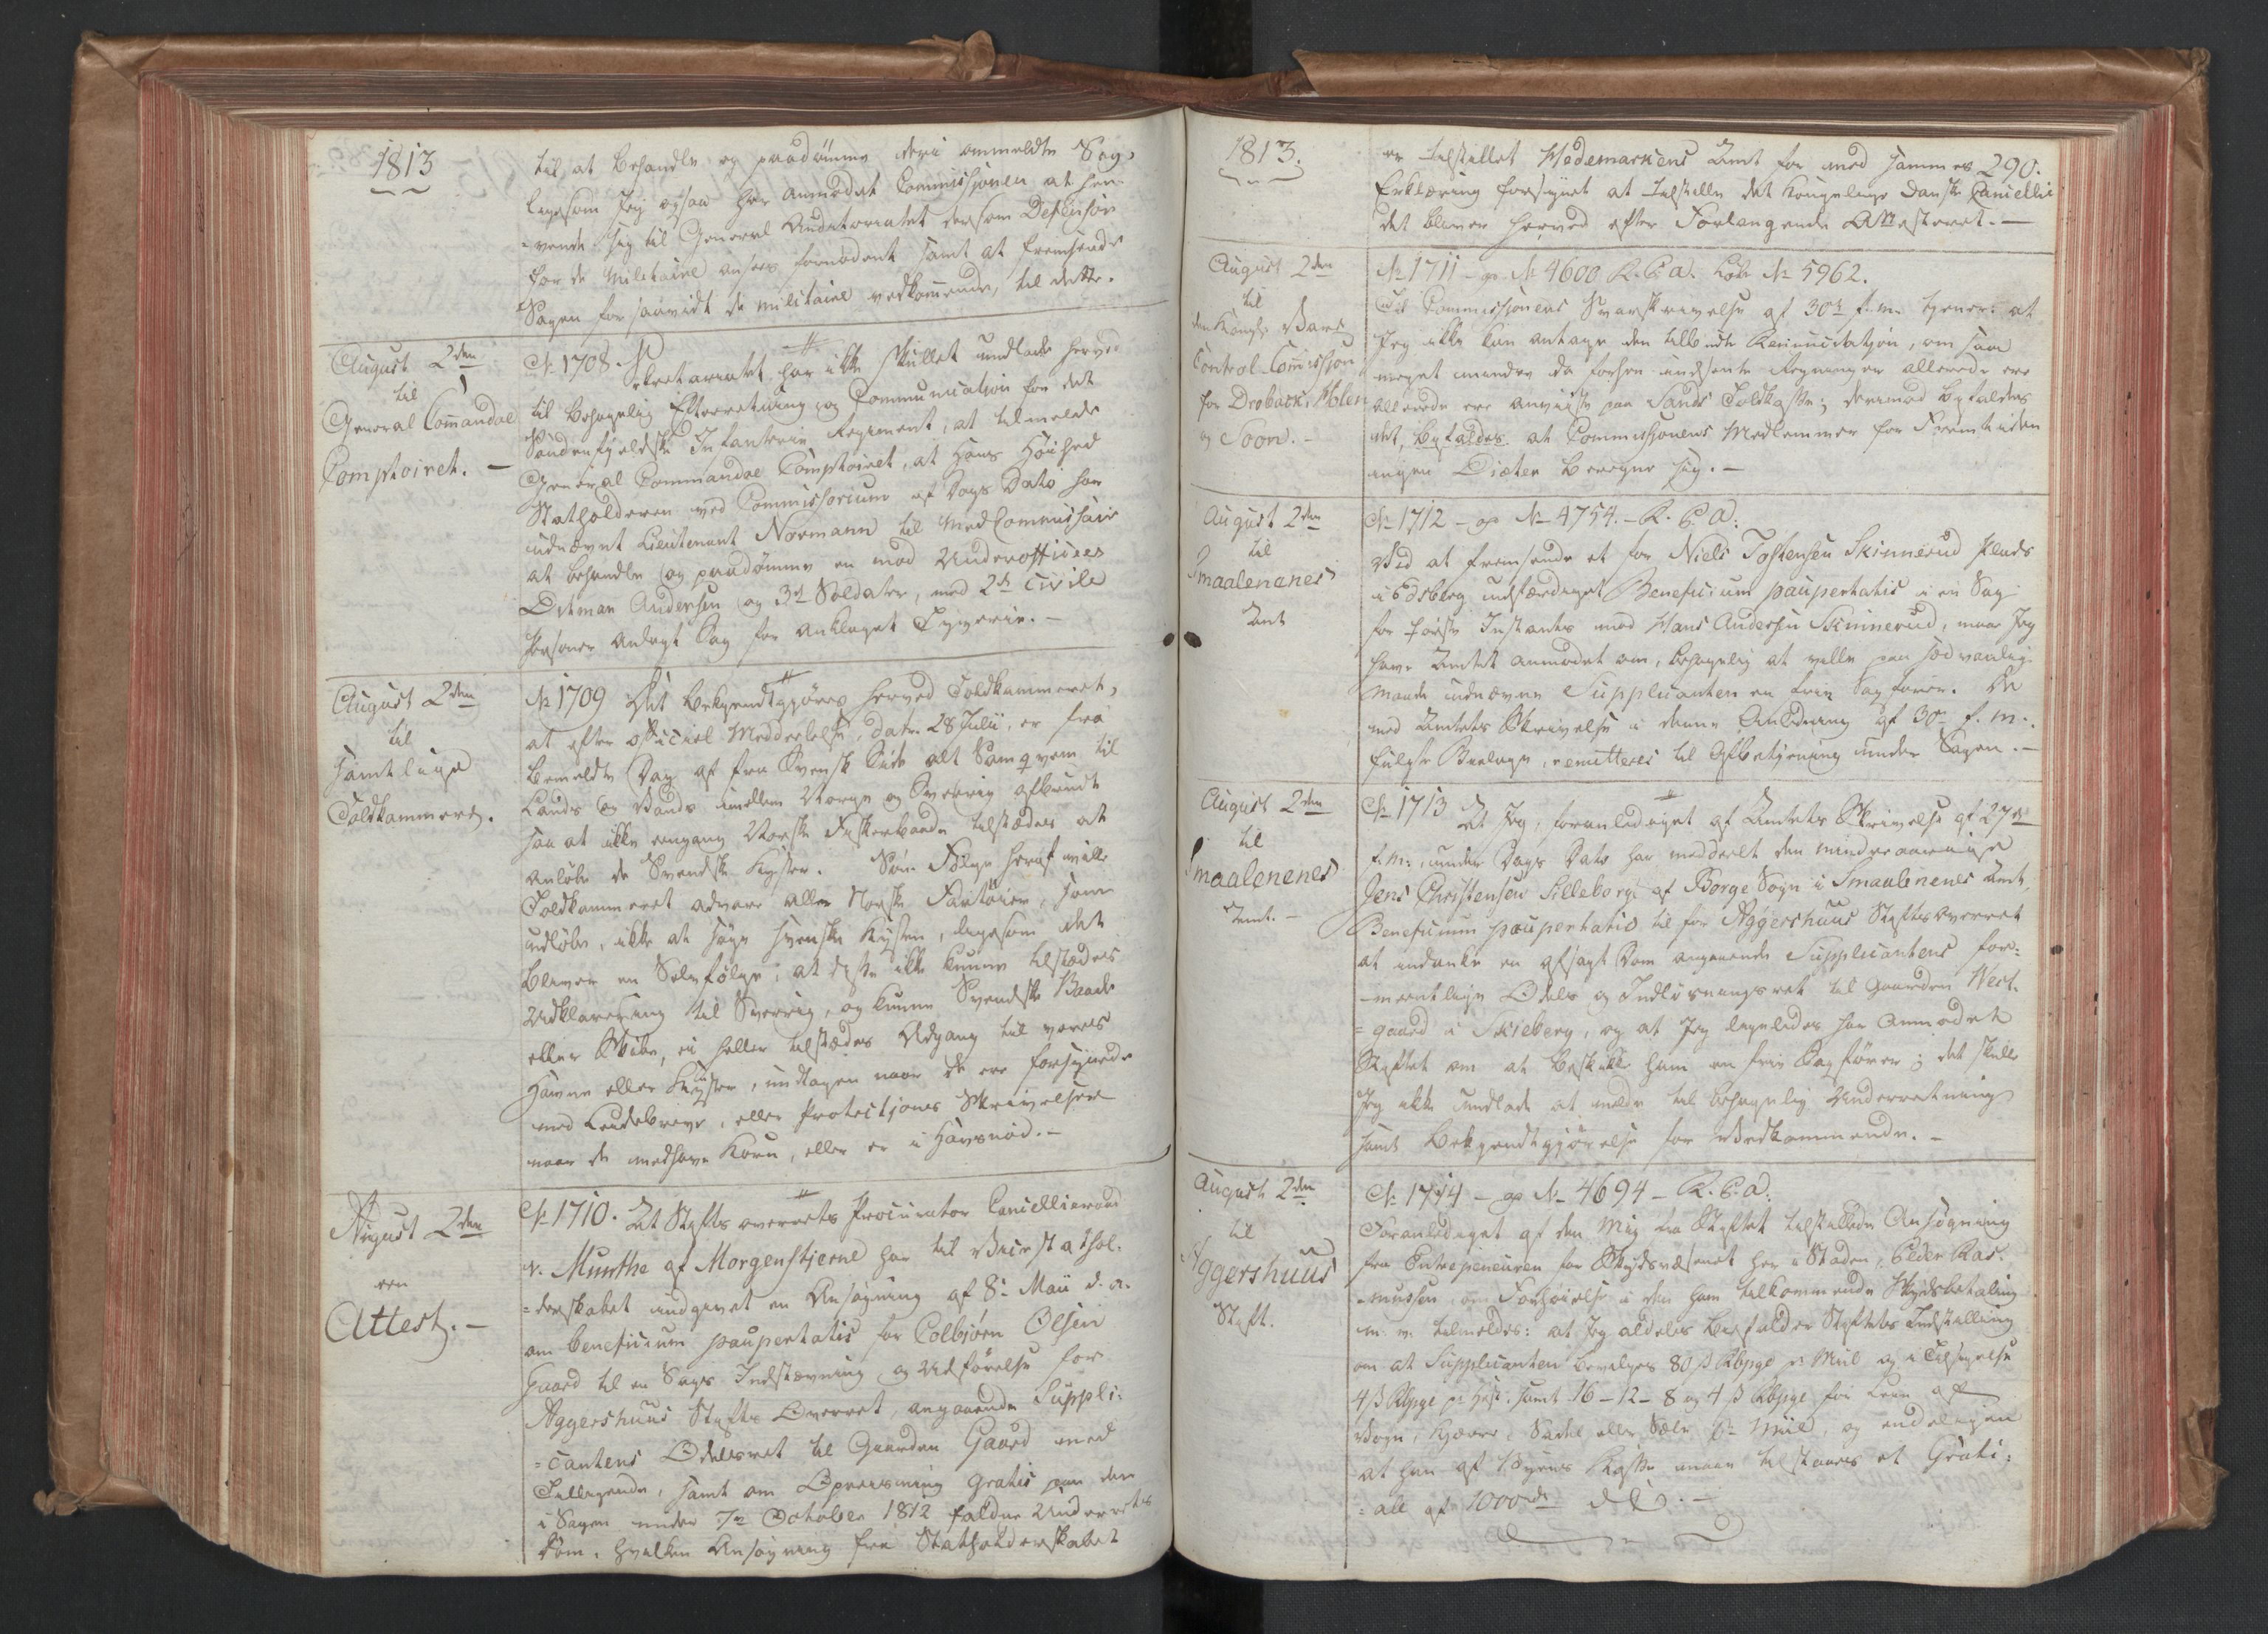 1813
til at behandle og paadømme deri anmeldte Sag,
ligesom jeg ogsaa har anmodet Commissjonen at hen-
=vende sig til General Auditoriatet dersom Defensor
for de Militaire ansees fornødent samt at fremsende
Sagen forsaavidt de militaire vedkommende, til dette.
August 2den
til
General Commandoe
Comptoiret. -
No 1708. Secretariatet har ikke skullet undlade herved
til behagelig Efterretning og Communication for det
Søndenfjeldske Infanterie Regiment, at tilmelde
General Commandoe Comptoiret, at Hans Høihed
Statholderen ved Commissorium af Dags Dato har
udnævnt Lieutenant Normann til MedCommissair
at behandle og paadømme en mod Underofficeer
Ditman Andersen og 3de Soldater, med 2de civile
Personer anlagt Sag for anklaget Tyverie. -
August 2den
til
samtlige
Toldkammere.
No 1709 Det bekjendtgjøres herved Toldkammeret,
at efter officiel Meddeelelse, datr. 28 Julii, er fra
bemeldte Dag af fra Svensk Side alt Samqvem til
Lands og Vands imellem Norge og Sverrig afbrudt
saa at ikke engang Norske Fiskerbaade tilstædes at
anløbe de Svendske Kyster. Som Følge heraf ville
Toldkammeret advare alle Norske Fartøier, som
udløbe, ikke at søge svenske Kysten, ligesom det
bliver en Selvfølge, at disse ikke kunne tilstædes
Udklarering til Sverrig, og kunne Svendske Baade
eller Skibe, ei heller tilstædes Adgang til vores
Havne eller Kyster, undtagen naar de ere forsynede
med Leidebreve, eller Protectjons Skrivelser
naar de medhave Korn, eller er i Havsnød. -
August 2den
een
Attest. -
No 1710. At Stiftsoverrets Procurator Cancellieraad
v. Munthe af Morgenstjerne har til Vicestathol-
=derskabet indgivet en Ansøgning af 8de Maii d. a.
om beneficium paupertatis for Colbjørn Olsen
Gaard til en Sags Indstævning og Udførelse for
Aggershuus Stifts Overret, angaaende Suppli-
=cantens Odelsret til Gaarden Gaard med
Tilliggende, samt om Opreisning gratis paa den
i Sagen under 7de October 1812 faldne Underrets
Dom, hvilken Ansøgning fra Statholderskabet
1813.
290.
er tilstillet Hedemarkens Amt for med sammes
Erklæring forsynet at tilstille det Kongelige danske Cancellie
det bliver herved efter Forlangende Attesteret. -
August 2den
til
den Kongl. Vare
Control-Commissjon
for Drøback, Holen
og Soon. -
No 1711 - og No 4600 R. C. a. Litr No 5962.
Til Commissjonens Svarskrivelse af 30te f. m. tjener: at
Jeg ikke kan antage den tilbudte Renunciatjon, om saa
meget mindre da forhen indsendte Regninger allerede ere
allerede ere anviist paa Sands Toldkasse; derimod bifaldes
det, bifaldes at Commissjonens Medlemmer for Fremtiden
ingen Diæter beregne sig. -
August 2den
til
Smaalenenes
Amt
No 1712 - og No 4754. - R. C. a.
Ved at fremsende et for Niels Tostensen Skinnerud Plads
i Edsberg udfærdiget Beneficium paupertatis i en Sag
for første Instants mod Hans Andersen Skinnerud, maae Jeg
have Amtet anmodet om, behagelig at ville paa sædvanlig
Maade udnævne Supplicanten en frie Sagfører. De
med Amtets Skrivelse i denne Anledning af 30te f. m.
fulgte Bielage, remitteres til Afbetjening under Sagen. -
August 2den
til
Smaalenenes
Amt. -
No 1713 At Jeg, foranlediget af Amtets Skrivelse af 27de
f. m. under Dags Dato har meddeelt den mindreaarige
Jens Christensen Silleborg af Borge Sogn i Smaalenenes Amt,
Beneficium paupertatis til for Aggershuus Stiftsoverret
at indanke en afsagt Dom angaaende Supplicantens for-
=meentlige Odels og Indløsningsret til Gaarden Vest-
=gaard i Skieberg, og at Jeg ligeledes har anmodet
Stiftet om at beskikke ham en frie Sagfører; det skulle
Jeg ikke undlade at melde til behagelig Underretning
samt Bekjendtgjørelse for Vedkommende. -
August 2den
til
Aggershuus
Stift.
No 1714 - og No 4694 - R. C. a.
Foranlediget af den mig fra Stiftet tilstillede Ansøgning
fra Entrepeneuren for Skydsvæsenet her i Staden, Peder Ras-
mussen, om Forhøielse i den ham tilkommende Skydsbetaling
m. v. tilmeldes: at Jeg aldeles bifalder Stiftets Indstilling
om at Supplicanten bevilges 80 ß Rbpge pr Miil og i Tilsigelse
4 ß Rbpge pr Hest. samt 16 - 12 - 8 og 4 ß Rbpge for Leie af
Vogn, Kjærre, Sadel eller Sæle pr Miil, og endeligen
at han af Byens Kasse maae tilstaaes et Grati-
=ale af 1000 rd